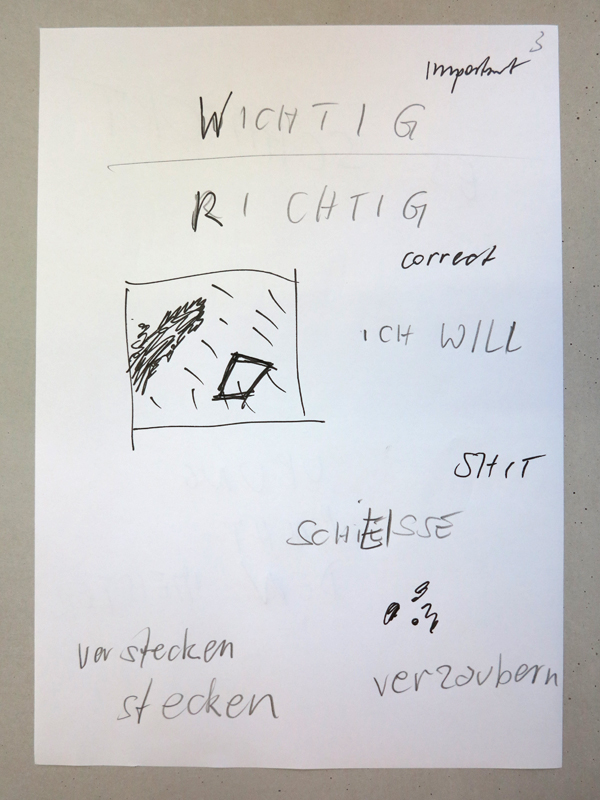 3
important
WICHTIG
RICHTIG
correct
ICH WILL
SHIT
SCHEISSE
verstecken
stecken
verzaubern